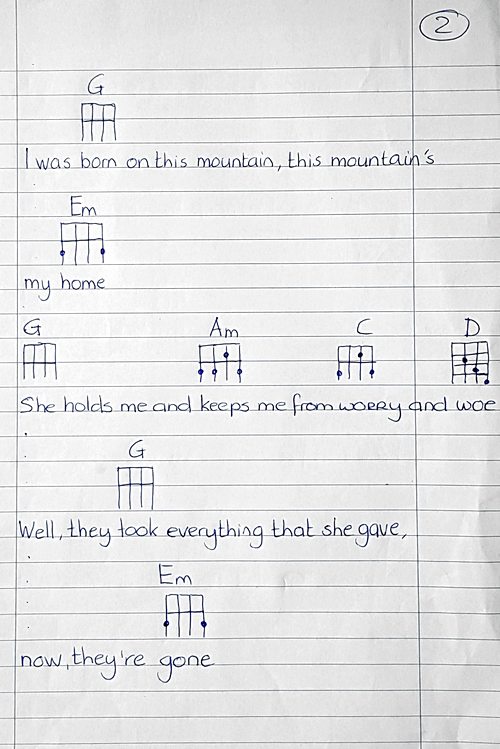 2
G
I was born on this mountain, this mountain's
Em
my home
G Am C D
She holds me and keeps me from worry and woe
G
Well, they took everything that she gave,
Em
now, they're gone